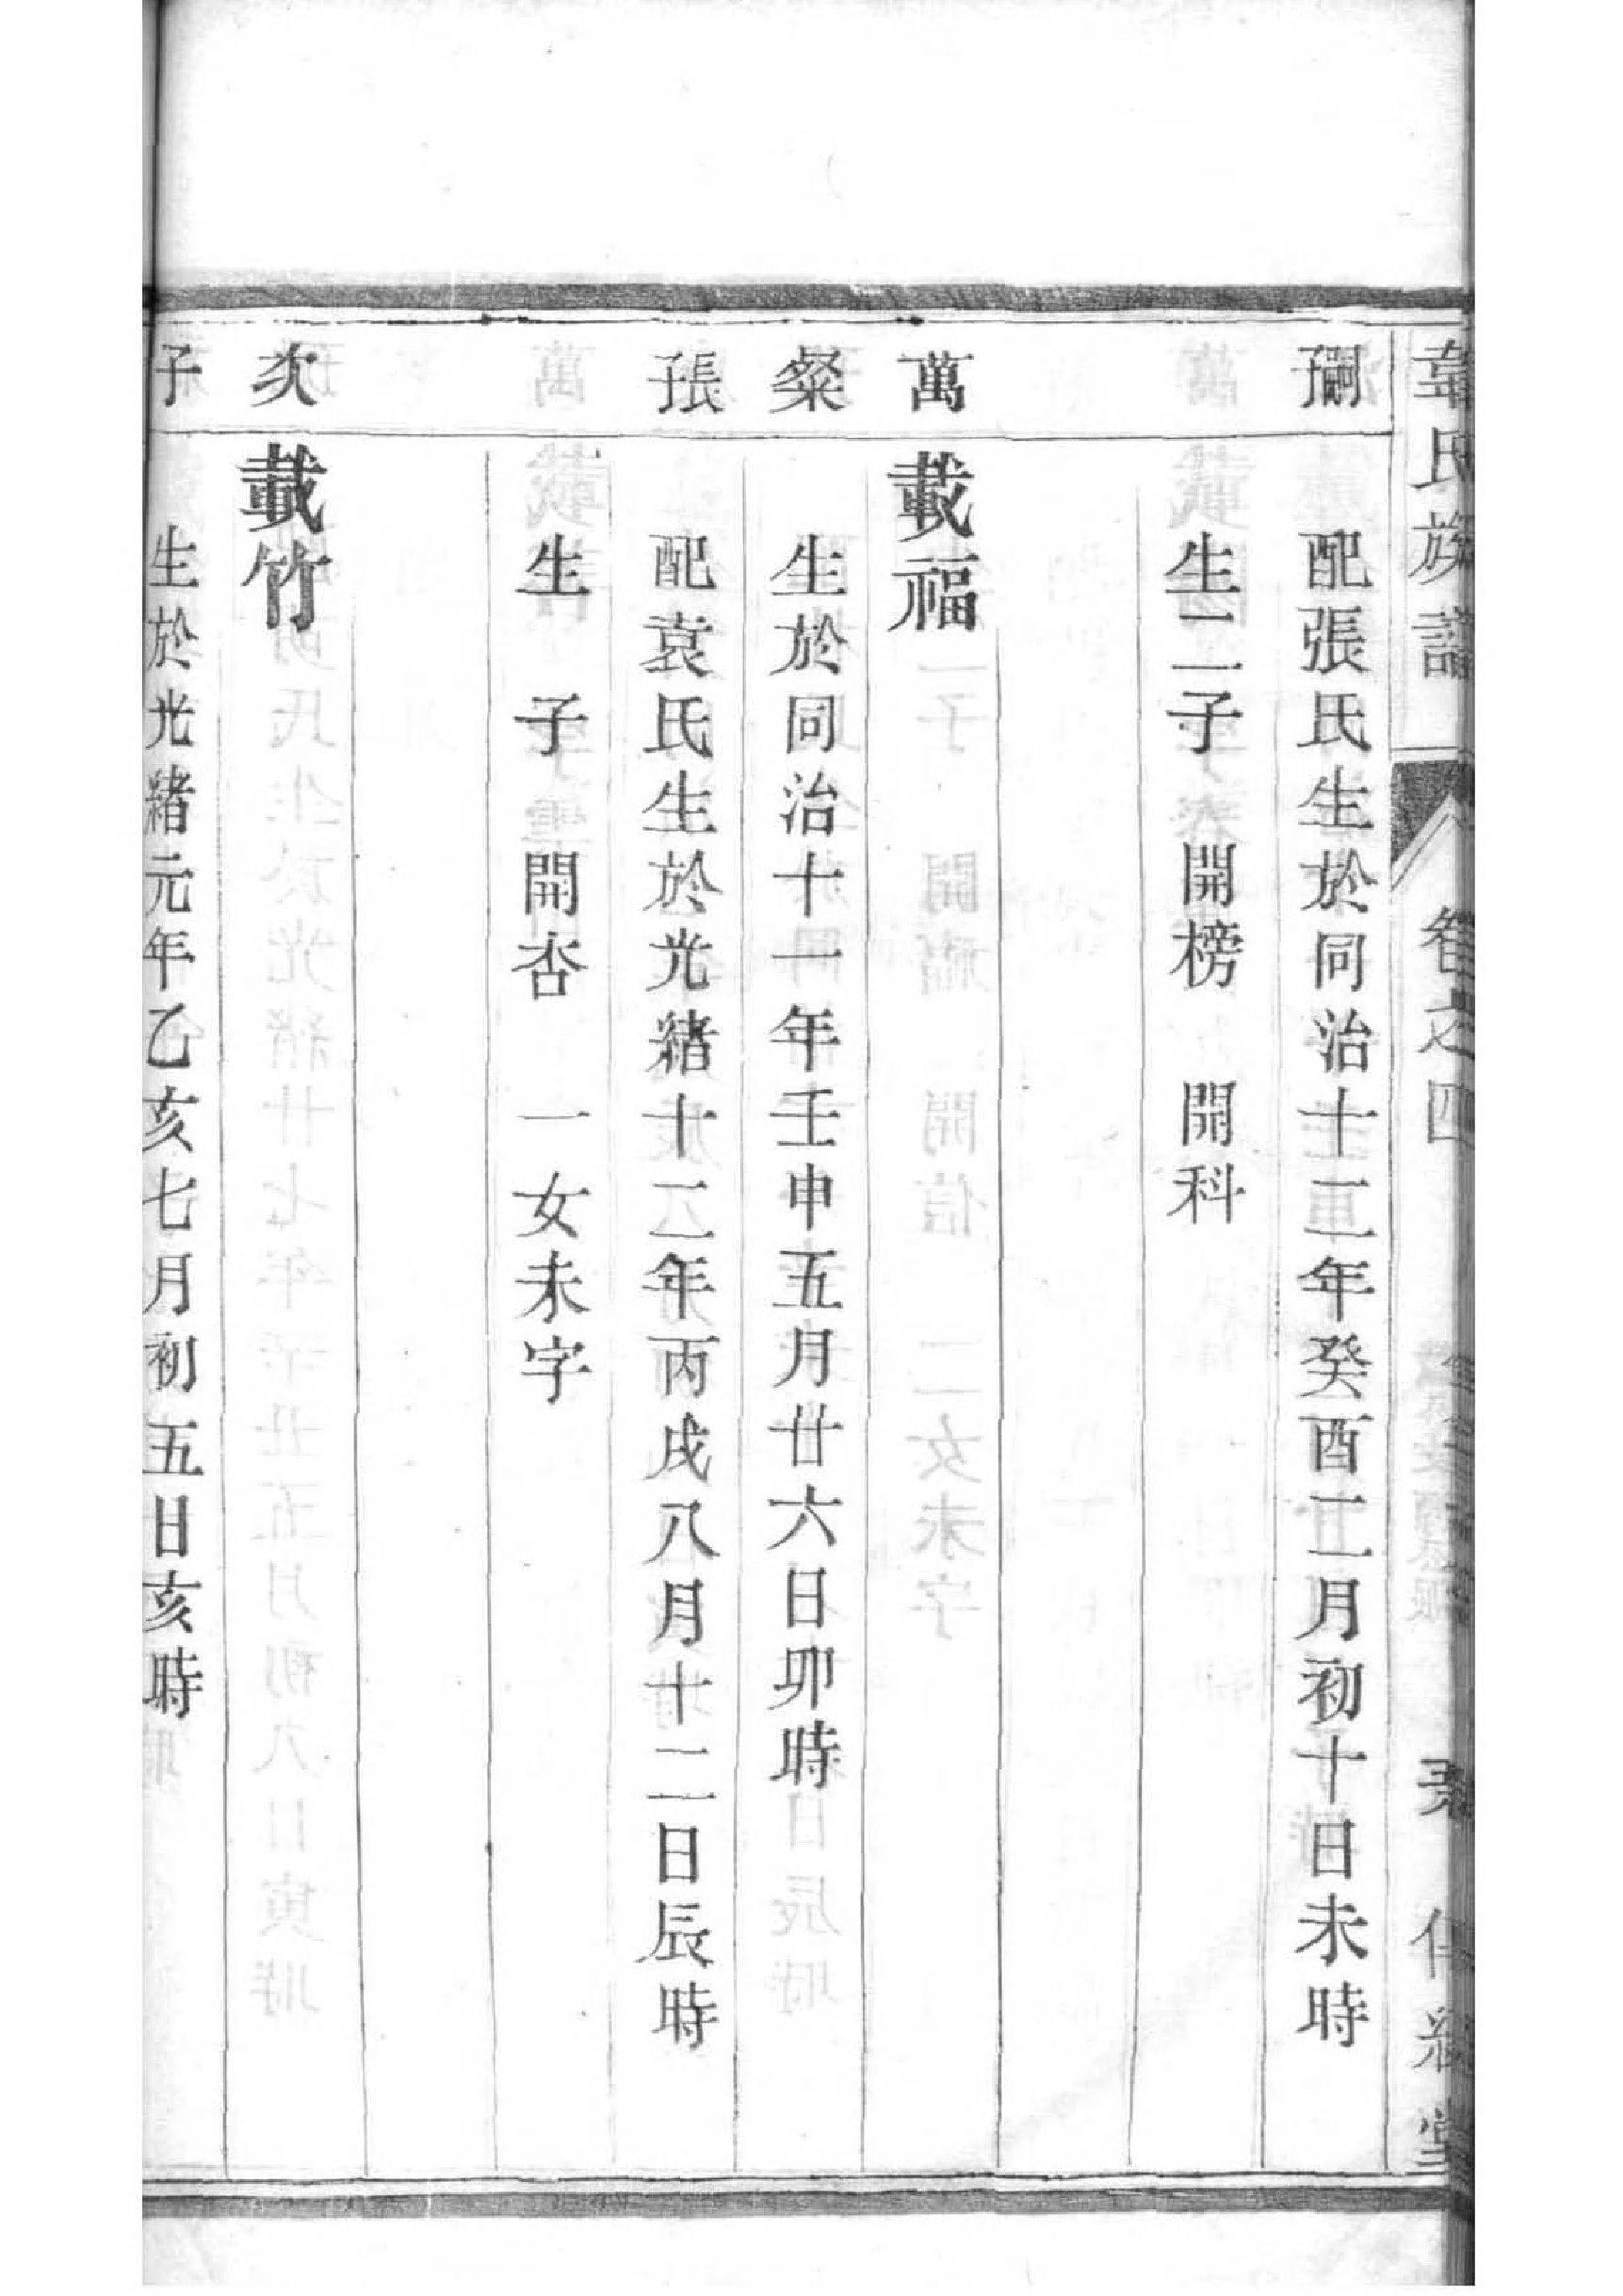 韋氏族譜 卷之四 堂
嗣子 配張氏生於同治十二年癸酉二月初十日未時
生二子 開榜 開科
萬 載福
粲 生於同治十一年壬申五月廿六日卯時
長子 配袁氏生於光緒十二年丙戌八月十二日辰時
生 子 開杏 一女未字
次 載竹
子 生於光緒元年乙亥七月初五日亥時